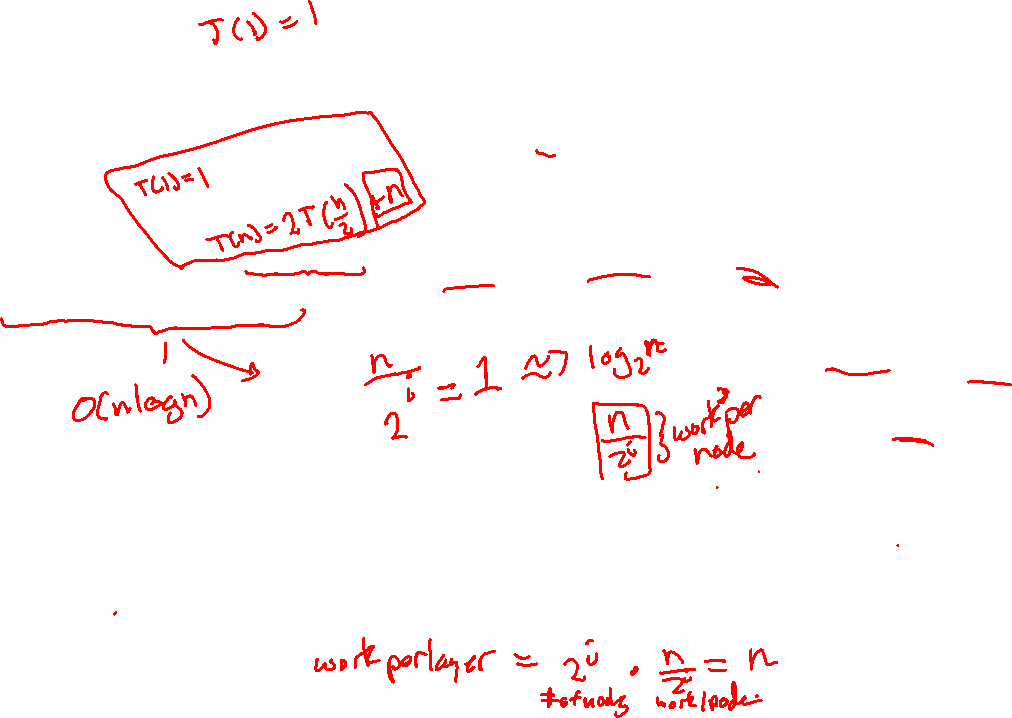 T(1) = 1
T(1) = 1
T(n) = 2T(n/2) + n
O(nlogn)
n/2^i = 1 ~> log_2 n
n/2^i } work per node
work per layer = 2^i · n/2^i = n
# of nodes work/node